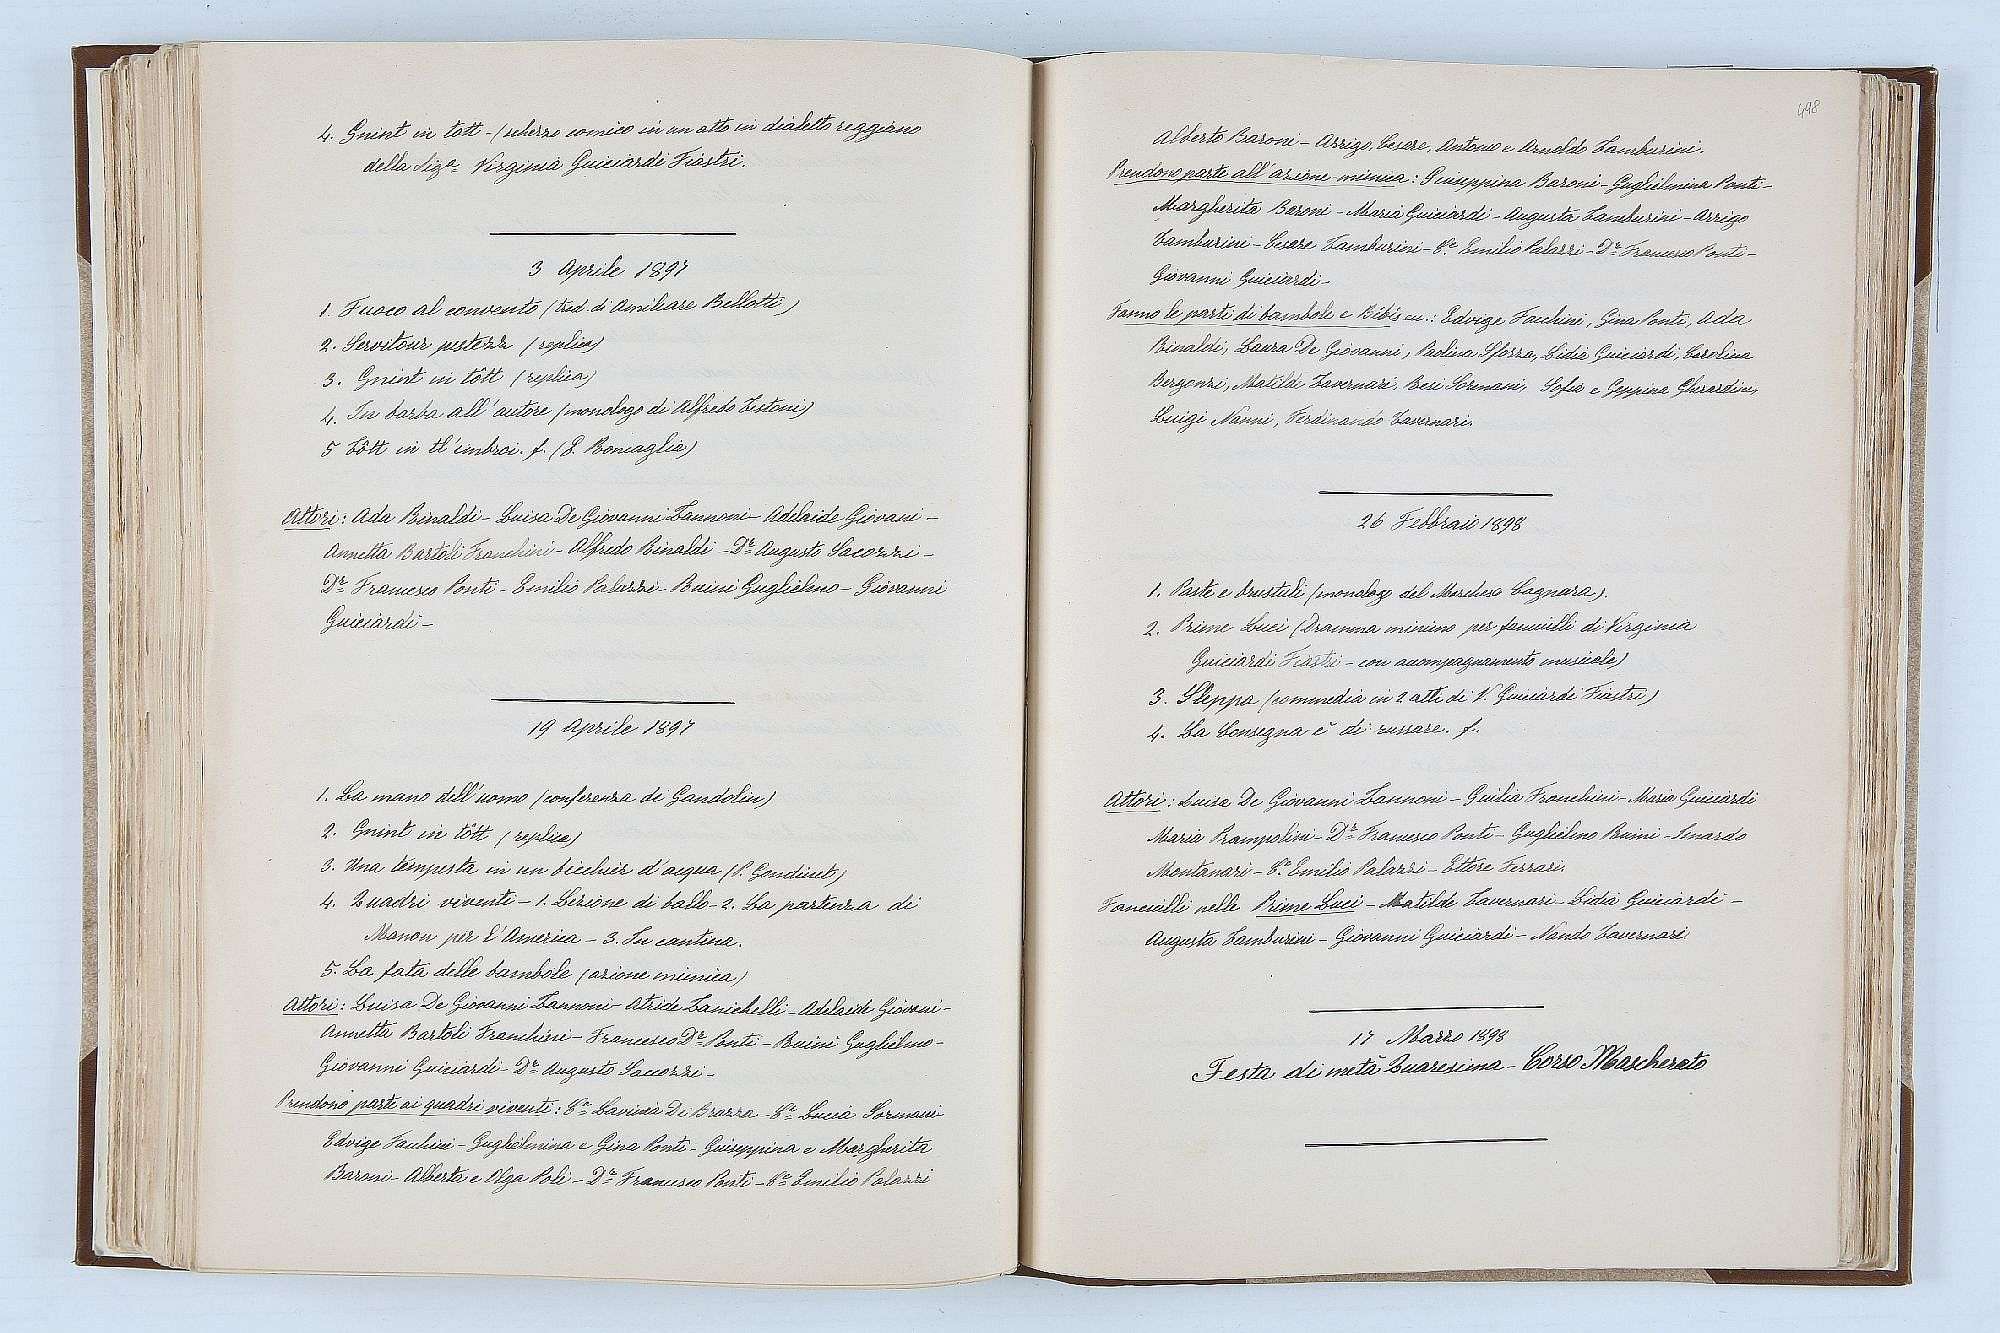 4. Gnint in tôtt - (scherzo comico in un atto in dialetto reggiano
della Sig.a Virginia Guiciardi Fiastri.
3 Aprile 1897
1. Fuoco al convento (trad. di Amilcare Bellotti)
2. Servitour pistezz (replica)
3. Gnint in tôtt (replica)
4. In barba all'autore (monologo di Alfredo Testoni)
5 Tôtt in tl'imbroi. f. (P. Boncaglia)
Attori: Ada Rinaldi - Luisa De Giovanni Zannoni - Adelaide Giovani -
Annetta Bartoli Franchini - Alfredo Rinaldi - Dr. Augusto Sacozzi -
Dr. Francesco Ponti - Emilio Palazzi - Ruini Guglielmo - Giovanni
Guiciardi -
19 Aprile 1897
1. La mano dell'uomo (conferenza di Gandolin)
2. Gnint in tôtt (replica)
3. Una tempesta in un bicchier d'acqua (P. Gondinet)
4. Quadri viventi - 1. Lezione di ballo - 2. La partenza di
Manon per l'America - 3. In cantina.
5. La fata delle bambole (azione mimica)
Attori: Luisa De Giovanni Zannoni - Atride Zanichelli - Adelaide Giovani -
Annetta Bartoli Franchini - Francesco Dr. Ponti - Ruini Guglielmo -
Giovanni Guiciardi - Dr. Augusto Saccozzi -
Prendono parte ai quadri viventi: C.a Lavinia Di Brazza - C.a Lucia Sormani
Edvige Facchini - Guglielmina e Gina Ponti - Giuseppina e Margherita
Baroni - Alberta e Olga Poli - Dr. Francesco Ponti - C.e Emilio Palazzi
498
Alberto Baroni - Arrigo, Cesare, Antonio e Arnaldo Tamburini.
Prendono parte all'azione mimica: Giuseppina Baroni - Guglielmina Ponti -
Margherita Baroni - Maria Guiciardi - Augusta Tamburini - Arrigo
Tamburini - Cesare Tamburini - C.e Emilio Palazzi - Dr. Francesco Ponti -
Giovanni Guiciardi -
Fanno le parti di bambole e Bébés ecc.: Edvige Facchini, Gina Ponti, Ada
Rinaldi, Laura De Giovanni, Paolina Sforza, Lidia Guiciardi, Carolina
Bergonzi, Matilde Tavernari, Besi Sormani, Sofia e Geppina Gherardini,
Luigi Nanni, Ferdinando Tavernari.
26 Febbraio 1898
1. Paste e brustuli (monologo del Marchese Cagnara).
2. Prime Luci (Dramma minimo per fanciulli di Virginia
Guiciardi Fiastri - con accompagnamento musicale)
3. Sleppa (commedia in 2 atti di V. Guiciardi Fiastri)
4. La Consegna è di russare. f.
Attori: Luisa De Giovanni Zannoni - Giulia Franchini - Maria Guiciardi
Maria Rampolini - Dr. Francesco Ponti - Guglielmo Ruini - Inardo
Montanari - C.e Emilio Palazzi - Ettore Ferrari.
Fanciulli nelle Prime Luci - Matilde Tavernari - Lidia Guiciardi -
Augusta Tamburini - Giovanni Guiciardi - Nando Tavernari
17 Marzo 1898
Festa di metà Quaresima - Corso Mascherato